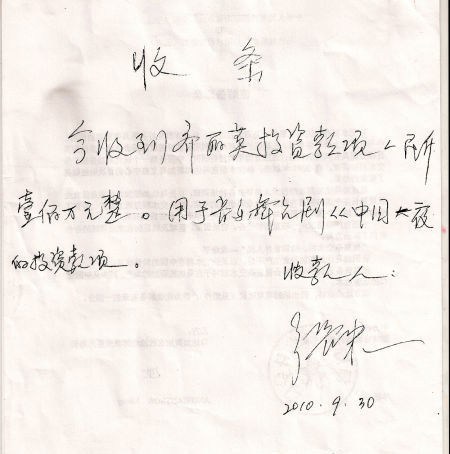 收 条
今收到齐丽英投资款项人民币
壹佰万元整。用于音乐舞台剧《中国一夜
的投资款项。
收款人:
2010.9.30